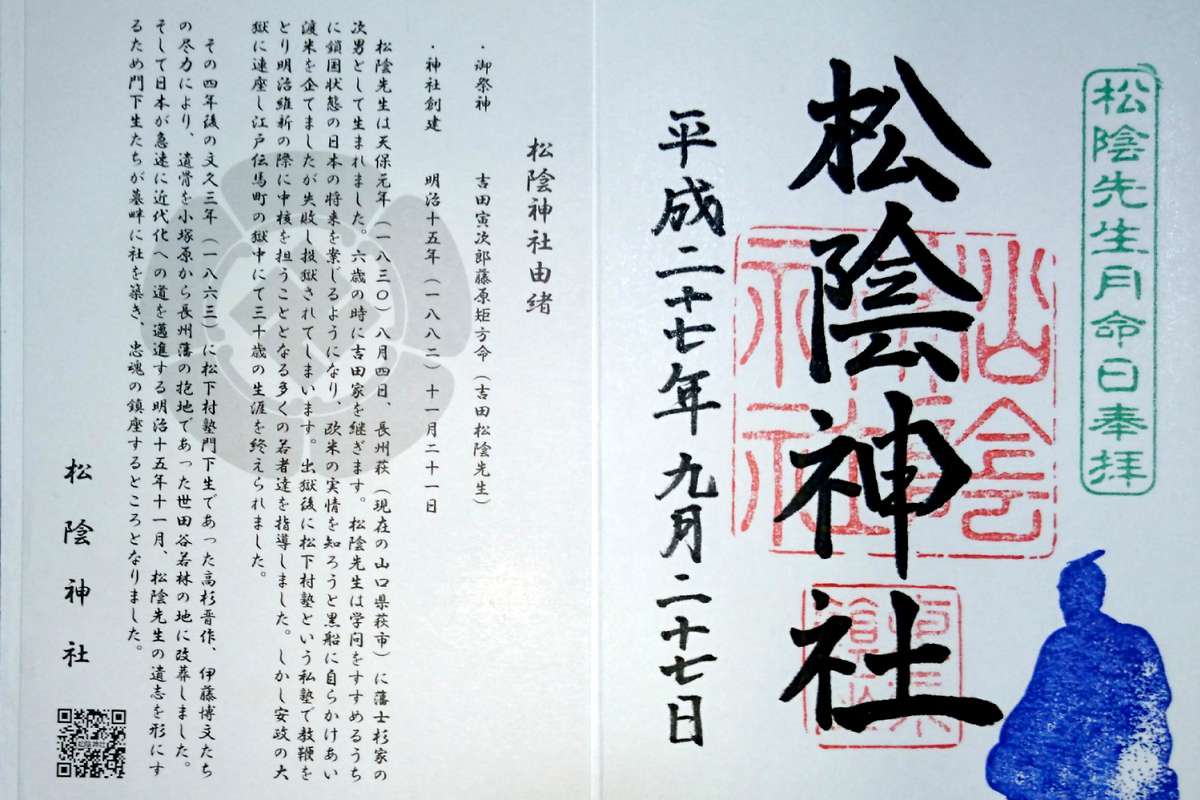 松陰先生月命日奉拝
松陰神社
平成二十七年九月二十七日
松陰神社由緒
・御祭神　吉田寅次郎藤原矩方命（吉田松陰先生）
・神社創建　明治十五年（一八八二）十一月二十一日
松陰先生は天保元年（一八三〇）八月四日、長州萩（現在の山口県萩市）に藩士杉家の
次男として生まれました。六歳の時に吉田家を継ぎます。松陰先生は学問をすすめるうち
に鎖国状態の日本の将来を案じるようになり、欧米の実情を知ろうと黒船に自らかけあい
渡米を企てましたが失敗し投獄されてしまいます。出獄後に松下村塾という私塾で教鞭を
とり明治維新の際に中核を担うこととなる多くの若者達を指導しました。しかし安政の大
獄に連座し江戸伝馬町の獄中にて三十歳の生涯を終えられました。
その四年後の文久三年（一八六三）に松下村塾門下生であった高杉晋作、伊藤博文たち
の尽力により、遺骨を小塚原から長州藩の抱地であった世田谷若林の地に改葬しました。
そして日本が急速に近代化への道を邁進する明治十五年十一月、松陰先生の遺志を形にす
るため門下生たちが墓畔に社を築き、忠魂の鎮座するところとなりました。
松陰神社